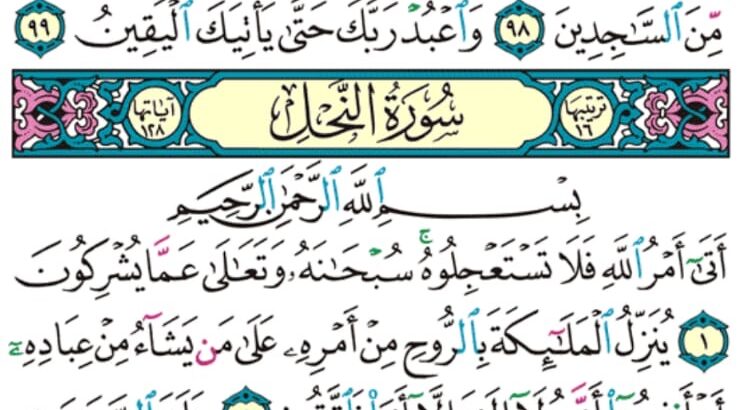 مِّنَ ٱلسَّٰجِدِينَ ٩٨ وَٱعْبُدْ رَبَّكَ حَتَّىٰ يَأْتِيَكَ ٱلْيَقِينُ ٩٩
ترتيبها ١٦ سُورَةُ النَّحْلِ آياتها ١٢٨
بِسْمِ ٱللَّهِ ٱلرَّحْمَٰنِ ٱلرَّحِيمِ
أَتَىٰٓ أَمْرُ ٱللَّهِ فَلَا تَسْتَعْجِلُوهُ ۚ سُبْحَٰنَهُۥ وَتَعَٰلَىٰ عَمَّا يُشْرِكُونَ
١ يُنَزِّلُ ٱلْمَلَٰٓئِكَةَ بِٱلرُّوحِ مِنْ أَمْرِهِۦ عَلَىٰ مَن يَشَآءُ مِنْ عِبَادِهِۦٓ